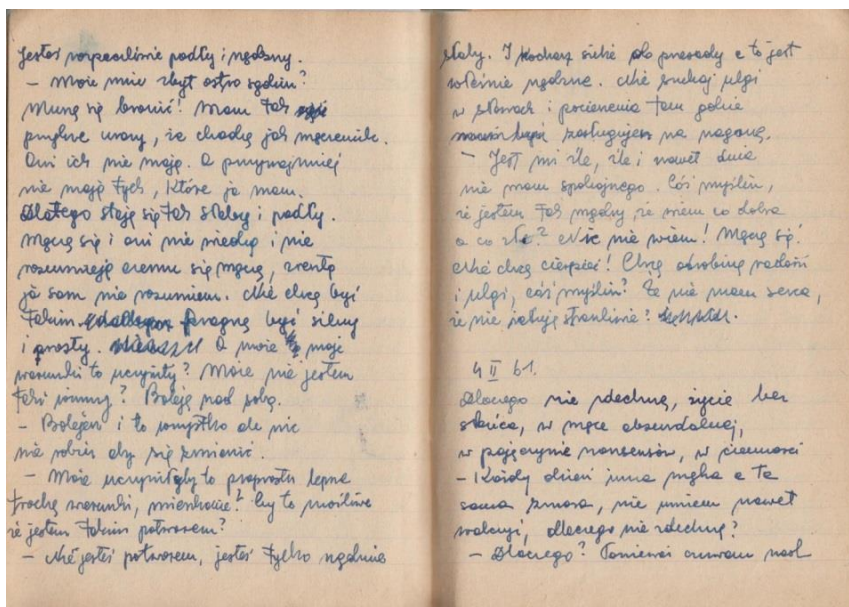 Jesteś rozpaczliwie podły i nędzny.
– Może mnie zbyt ostro sądzisz?
Muszę się bronić! Mam tak
przykre urazy, że chodzę jak męczennik.
Oni ich nie mają. A przynajmniej
nie mają tych, które ja mam.
Dlatego staję się tak słaby i podły.
Męczę się i oni nie wiedzą i nie
rozumieją czemu się męczę, zresztą
ja sam nie rozumiem. Nie chcę być
takim pragnę być silny
i prosty. A może to moje
warunki to uczyniły? Może nie jestem
taki winny? Boleję nad sobą.
– Bolejesz i to wszystko ale nic
nie robisz aby się zmienić.
– Może uczyniłyby to poprostu lepsze
trochę warunki, mieszkanie? Czy to możliwe
że jestem takim potworem?
– Nie jesteś potworem, jesteś tylko nędznie
słaby. I kochasz siebie do przesady a to jest
właśnie nędzne. Nie szukaj ulgi
w słowach i pocieszenia tam gdzie
zasługujesz na naganę.
– Jest mi źle, źle i nawet dnia
nie mam spokojnego. Cóś myślisz,
że jestem tak mądry, że wiem co dobre
a co złe? Nic nie wiem! Męczę się!
Nie chcę cierpieć! Chcę odrobinę radości
i ulgi, cóś myślisz? Że nie mam serca,
że nie żałuję straszliwie?
4 II 61.
Dlaczego nie zdechnę, życie bez
słońca, w męce absurdalnej,
w pajęczynie nonsensów, w ciemności
– Każdy dzień inna męka a ta
sama zmora, nie umiem nawet
walczyć, dlaczego nie zdechnę?
– Dlaczego? Ponieważ czuwam nad